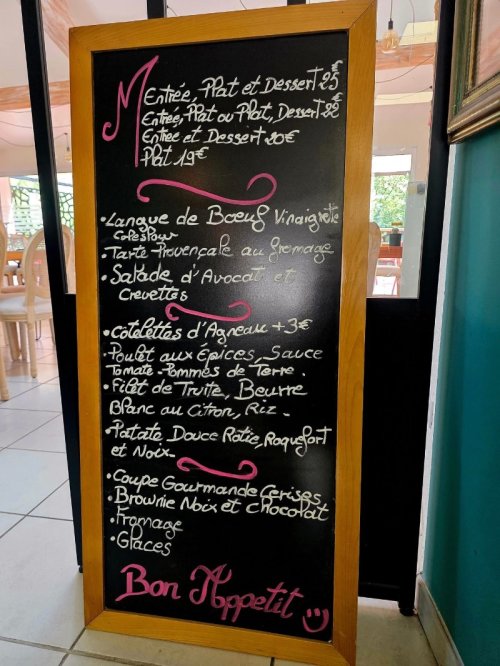 Menu
Entrée, Plat et Dessert 25€
Entrée, Plat ou Plat, Dessert 22€
Entrée et Dessert 20€
Plat 19€
• Langue de Bœuf Vinaigrette
Coleslaw
• Tarte Provençale au fromage
• Salade d'Avocat et
Crevettes
• Cotelettes d'Agneau +3€
• Poulet aux Épices, Sauce
Tomate - Pommes de Terre.
• Filet de Truite, Beurre
Blanc au Citron, Riz.
• Patate Douce Rotie, Roquefort
et Noix.
• Coupe Gourmande Cerises
• Brownie Noix et Chocolat
• Fromage
• Glaces
Bon Appetit